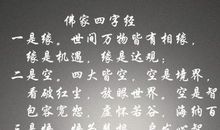 佛家四字经
一是缘。世间万物皆有相缘，
缘是机遇，缘是达观；
二是空。四大皆空，空是境界，
看破红尘，放眼世界。空是智
包容宽恕，虚怀若谷，海纳百